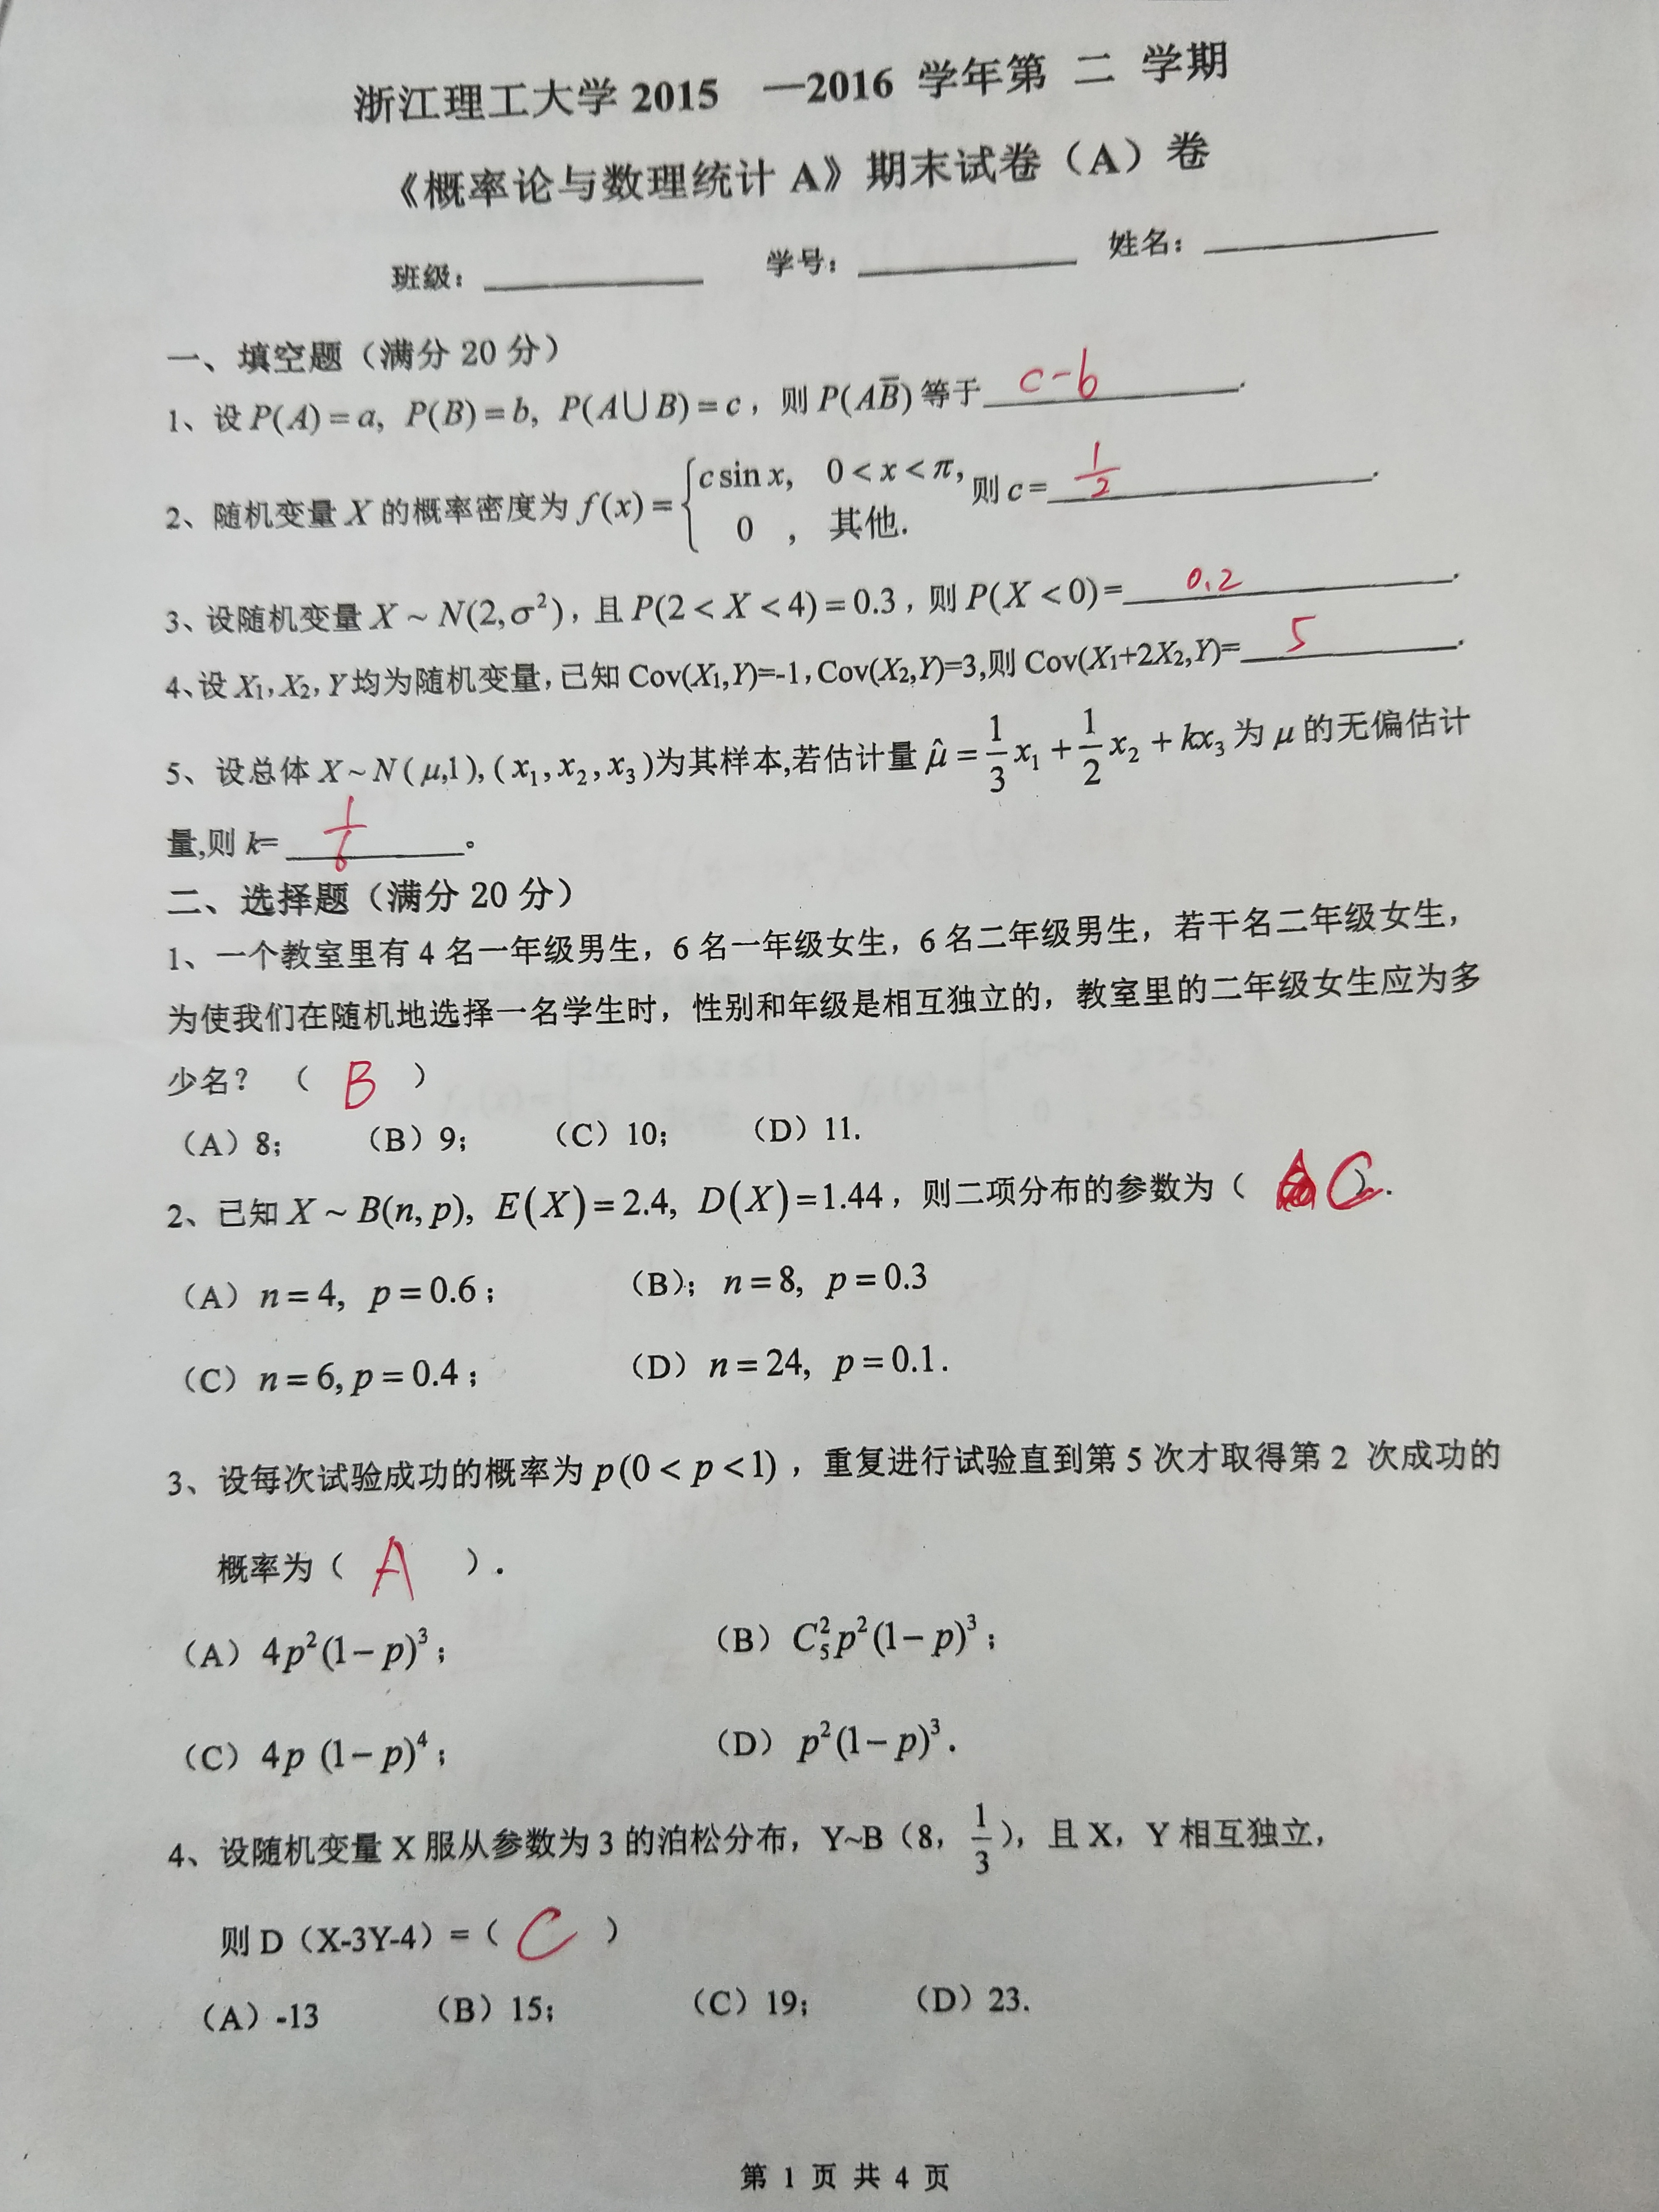 浙江理工大学 2015 —2016 学年第 二 学期
《概率论与数理统计 A》期末试卷（A）卷
班级：________ 学号：________ 姓名：________
一、填空题（满分 20 分）
1、设 P(A) = a, P(B) = b, P(A∪B) = c，则 P(AB̅) 等于 c-b .
2、随机变量 X 的概率密度为 f(x) = { c sin x, 0 < x < π, 0 , 其他. 则 c = 1/2 .
3、设随机变量 X ~ N(2,σ²)，且 P(2 < X < 4) = 0.3，则 P(X < 0) = 0.2 .
4、设 X₁, X₂, Y 均为随机变量，已知 Cov(X₁,Y)=-1, Cov(X₂,Y)=3,则 Cov(X₁+2X₂,Y)= 5 .
5、设总体 X ~ N(μ,1), (x₁, x₂, x₃)为其样本,若估计量 μ̂ = 1/3 x₁ + 1/2 x₂ + kx₃ 为 μ 的无偏估计
量,则 k= 1/6 。
二、选择题（满分 20 分）
1、一个教室里有 4 名一年级男生，6 名一年级女生，6 名二年级男生，若干名二年级女生，
为使我们在随机地选择一名学生时，性别和年级是相互独立的，教室里的二年级女生应为多
少名？（ B ）
（A）8； （B）9； （C）10； （D）11.
2、已知 X ~ B(n, p), E(X) = 2.4, D(X) = 1.44，则二项分布的参数为（ C ）.
（A）n = 4, p = 0.6； （B）；n = 8, p = 0.3
（C）n = 6, p = 0.4； （D）n = 24, p = 0.1.
3、设每次试验成功的概率为 p(0 < p < 1)，重复进行试验直到第 5 次才取得第 2 次成功的
概率为（ A ）.
（A）4p²(1− p)³； （B）C₅²p²(1− p)³；
（C）4p (1− p)⁴； （D）p²(1− p)³.
4、设随机变量 X 服从参数为 3 的泊松分布，Y~B（8，1/3），且 X，Y 相互独立，
则 D（X-3Y-4）=（ C ）
（A）-13 （B）15； （C）19； （D）23.
第 1 页 共 4 页